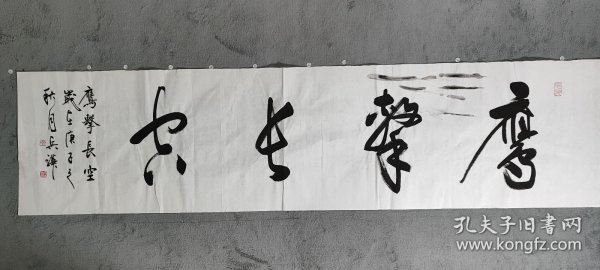 鹰击长空
鷹擊長空
歲在庚子之
秋月
孔夫子旧书网
www.kongfz.com